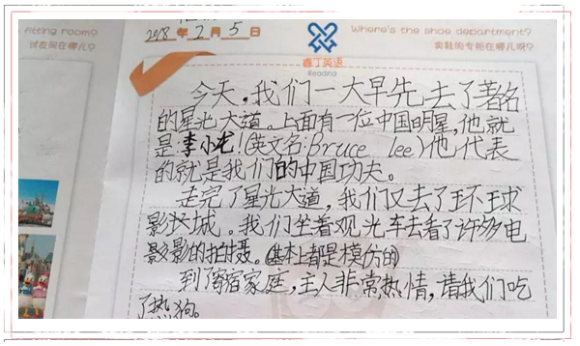 2018年2月5日
fitting room?
试衣间在哪儿?
Where's the shoe department?
卖鞋的专柜在哪儿呀?
鑫丁英语
Reading
今天,我们一大早先去了著名
的星光大道。上面有一位中国明星,他就
是李小龙!(英文名:Bruce lee)他代表
的就是我们的中国功夫。
走完了星光大道,我们又去了环球
影城。我们坐着观光车去看了许多电
影的拍摄。(基本上都是模仿的)
到了寄宿家庭,主人非常热情,请我们吃
了热狗。